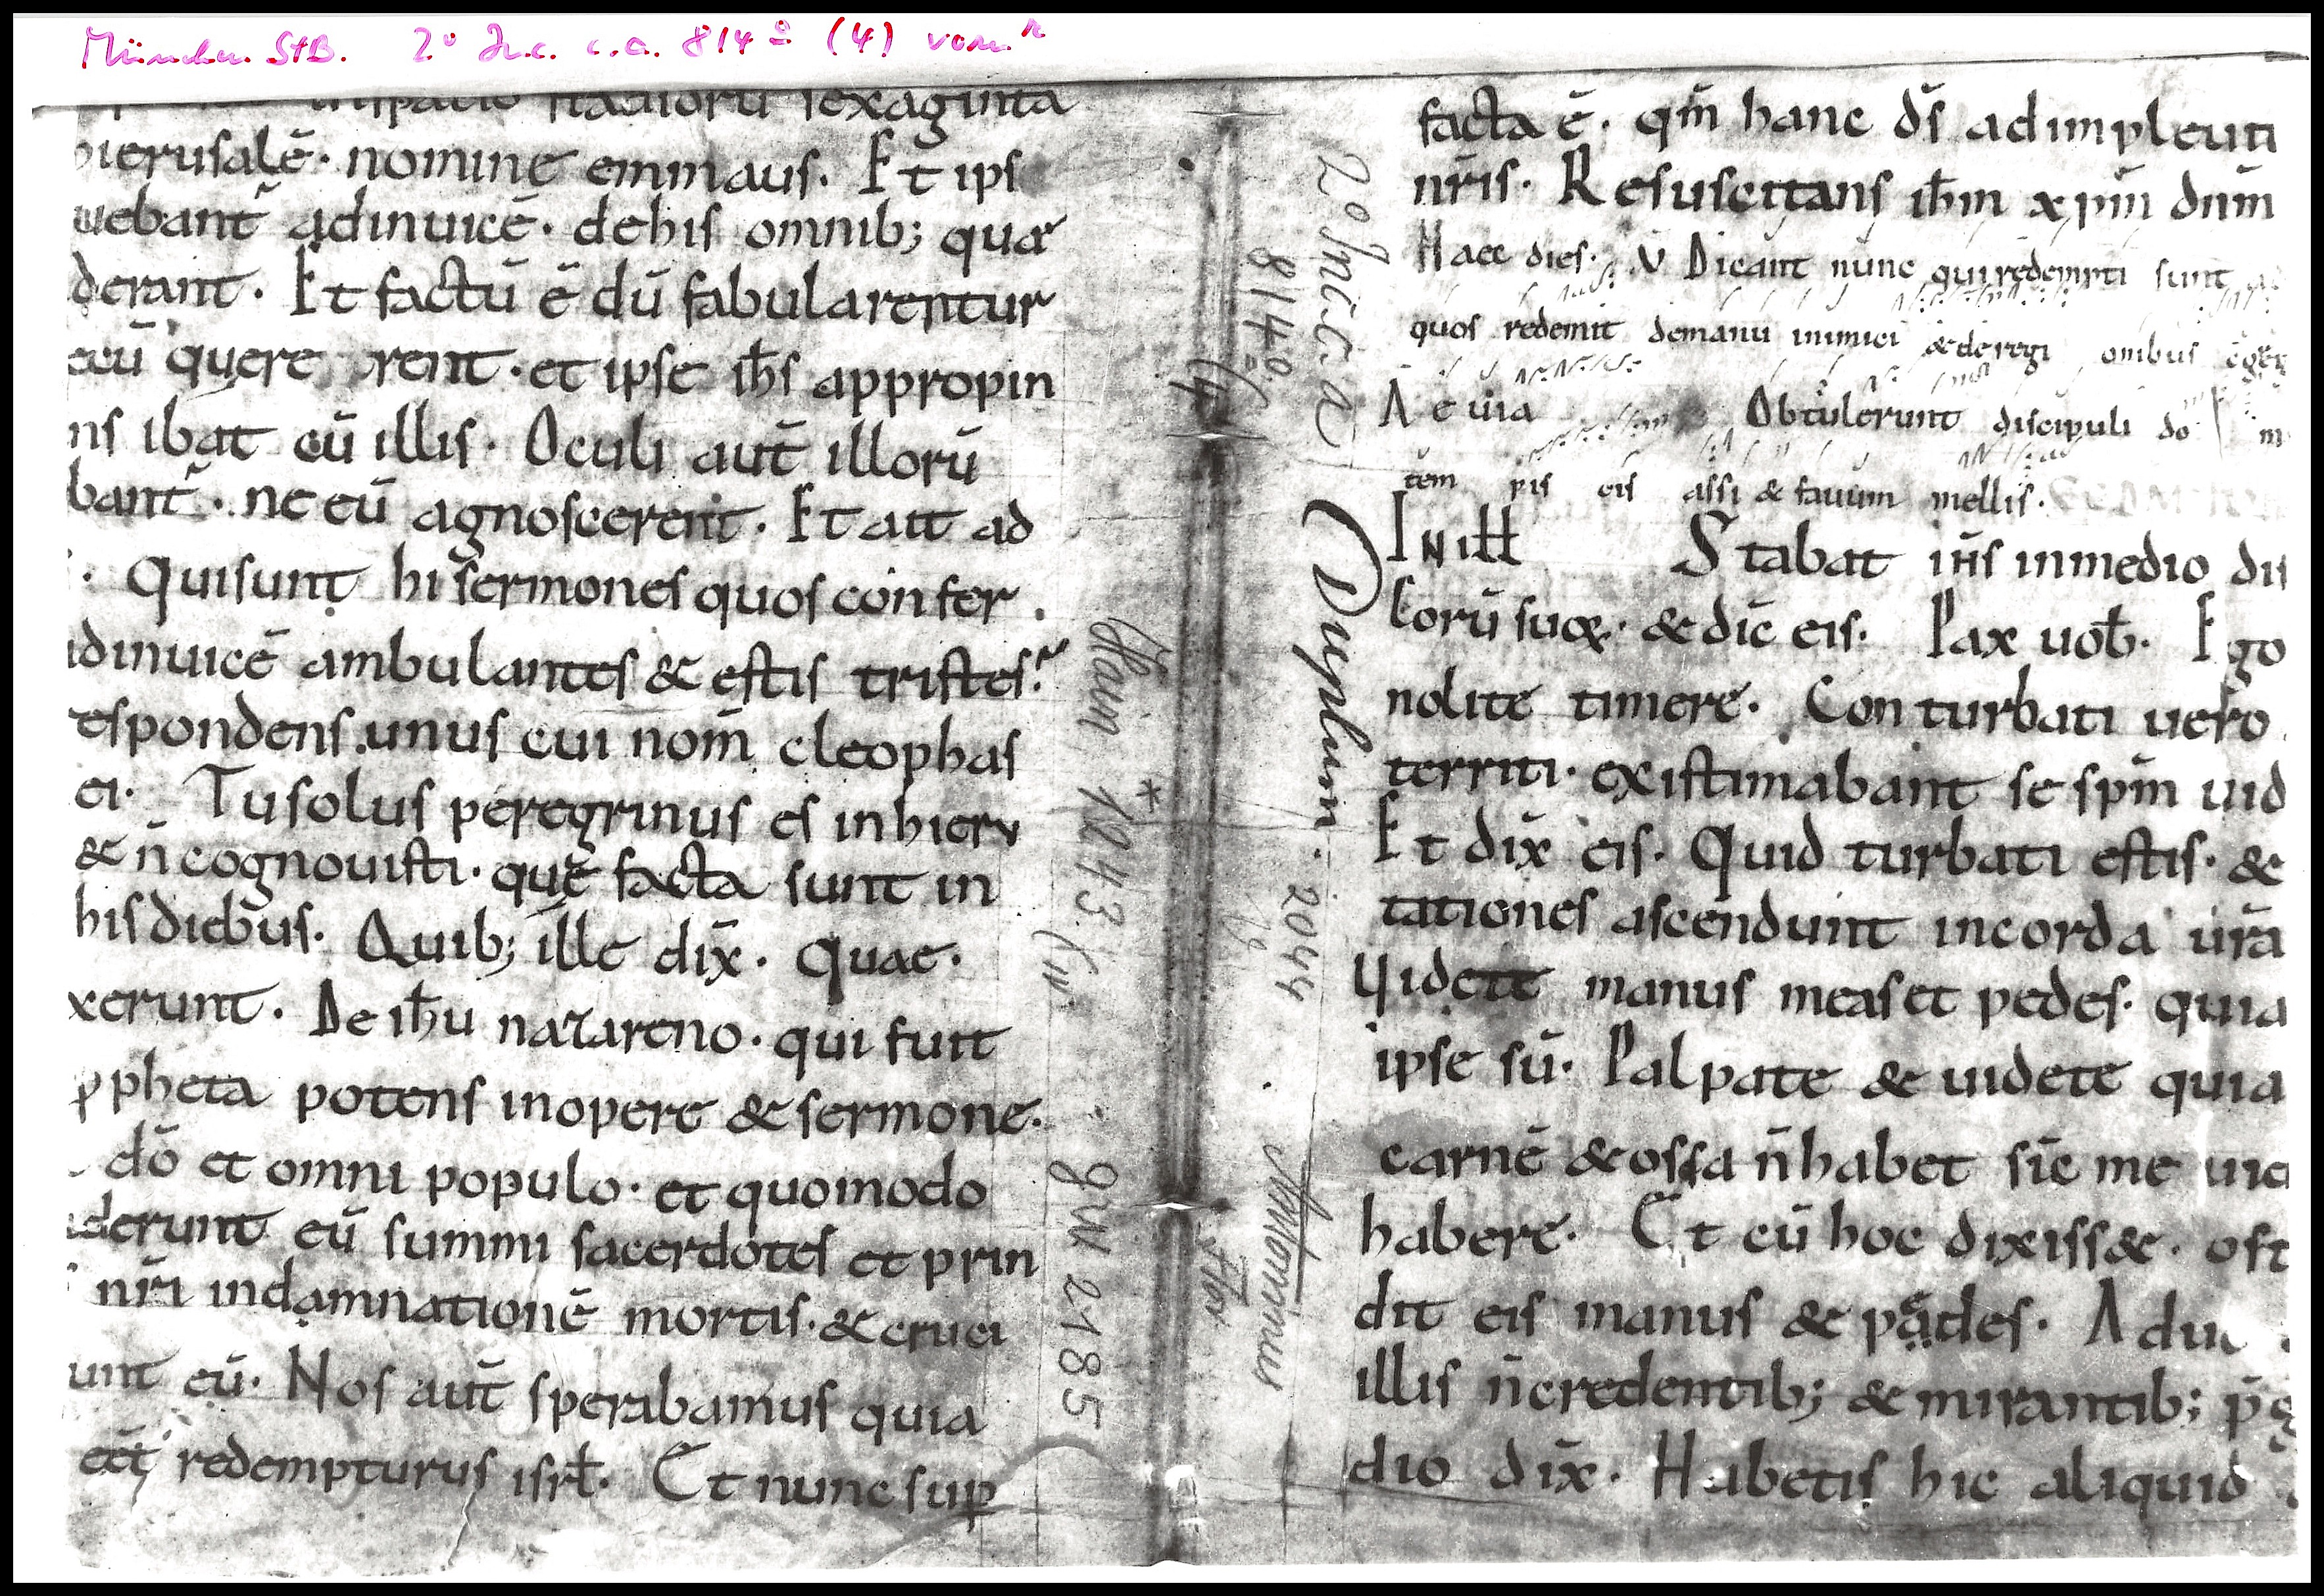 München StB. 2° Inc. c.a. 814º (4) vorn
inspatio stadiorū sexaginta
hierusalē· nomine emmaus. Et ips
uebant᷑ adinuicē· dehis omnib; quæ
derant· Et factū ē dū fabularentur
ecū quere rent· et ipse ih̄s appropin
ns ibat cū illis· Oculi aut̄ illorū
bant᷑· ne eū agnoscerent· Et ait ad
· Quisunt hi sermones quos confer
adinuicē ambulantes & estis tristes?
espondens unus cui nom̄ cleophas
ei· Tusolus peregrinus es inhieru
& n̄ cognouisti· quę facta sunt in
hisdiebus· Quib; ille dix̄· Quae·
xerunt· De ih̄u nazareno· qui fuit
ppheta potens inopere & sermone·
dō et omni populo· et quomodo
derunt eū summi sacerdotes et prin
nr̄i indamnationē mortis· & cruci
unt eū· Nos aut̄ sperabamus quia
eēt redempturus isrl̄· Et nunc sup
Clam 1*243 (4
GW 2185
(4
Flor
2° Inc. c. a.
814º
Duplum: 2044
Antoninus
facta ē· qm̄ hanc ds̄ adimpleuit
nr̄is· Resuscitans ih̄m xp̄m dn̄m
Haec dies· V̄ Dicant nunc qui redempti sunt a
quos redemit demanu inimici & de regi onibus cōgre
A e uia Obtulerunt discipuli do m
tem pis cis assi & fauum mellis·
In ill̄ Stabat ih̄s inmedio dis
lorū suoꝝ· & dic̄ eis· Pax uob̄· Ego
nolite timere· Conturbati uero
territi· existimabant se sp̄m uid
Et dix̄ eis· Quid turbati estis· &
tationes ascendunt incorda ur̄a
Uidete manus meas et pedes· quia
ipse sū· Palpate & uidete quia
carnē & ossa n̄ habet sic̄ me uid
habere· Et cū hoc dixiss&· ost
dit eis manus & pędes· Aduc
illis n̄ credentib; & mirantib; p̄ g
dio dix̄· Habetis hic aliquid